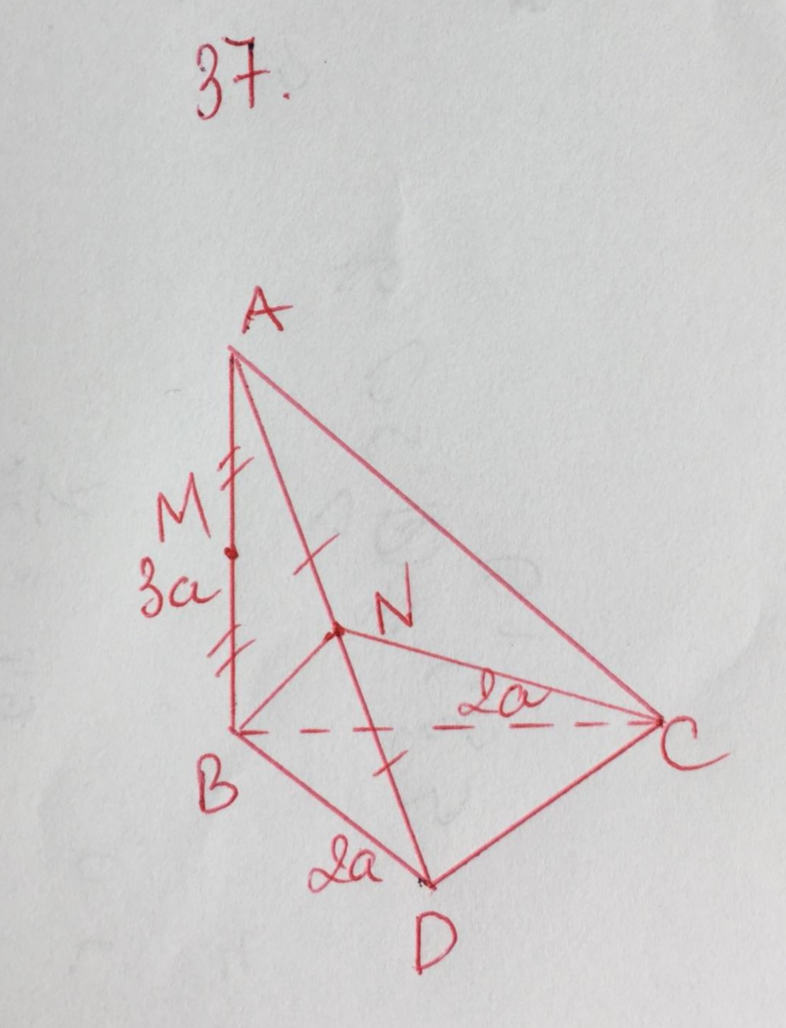 37.
A
M
3a
N
2a
B
C
2a
D